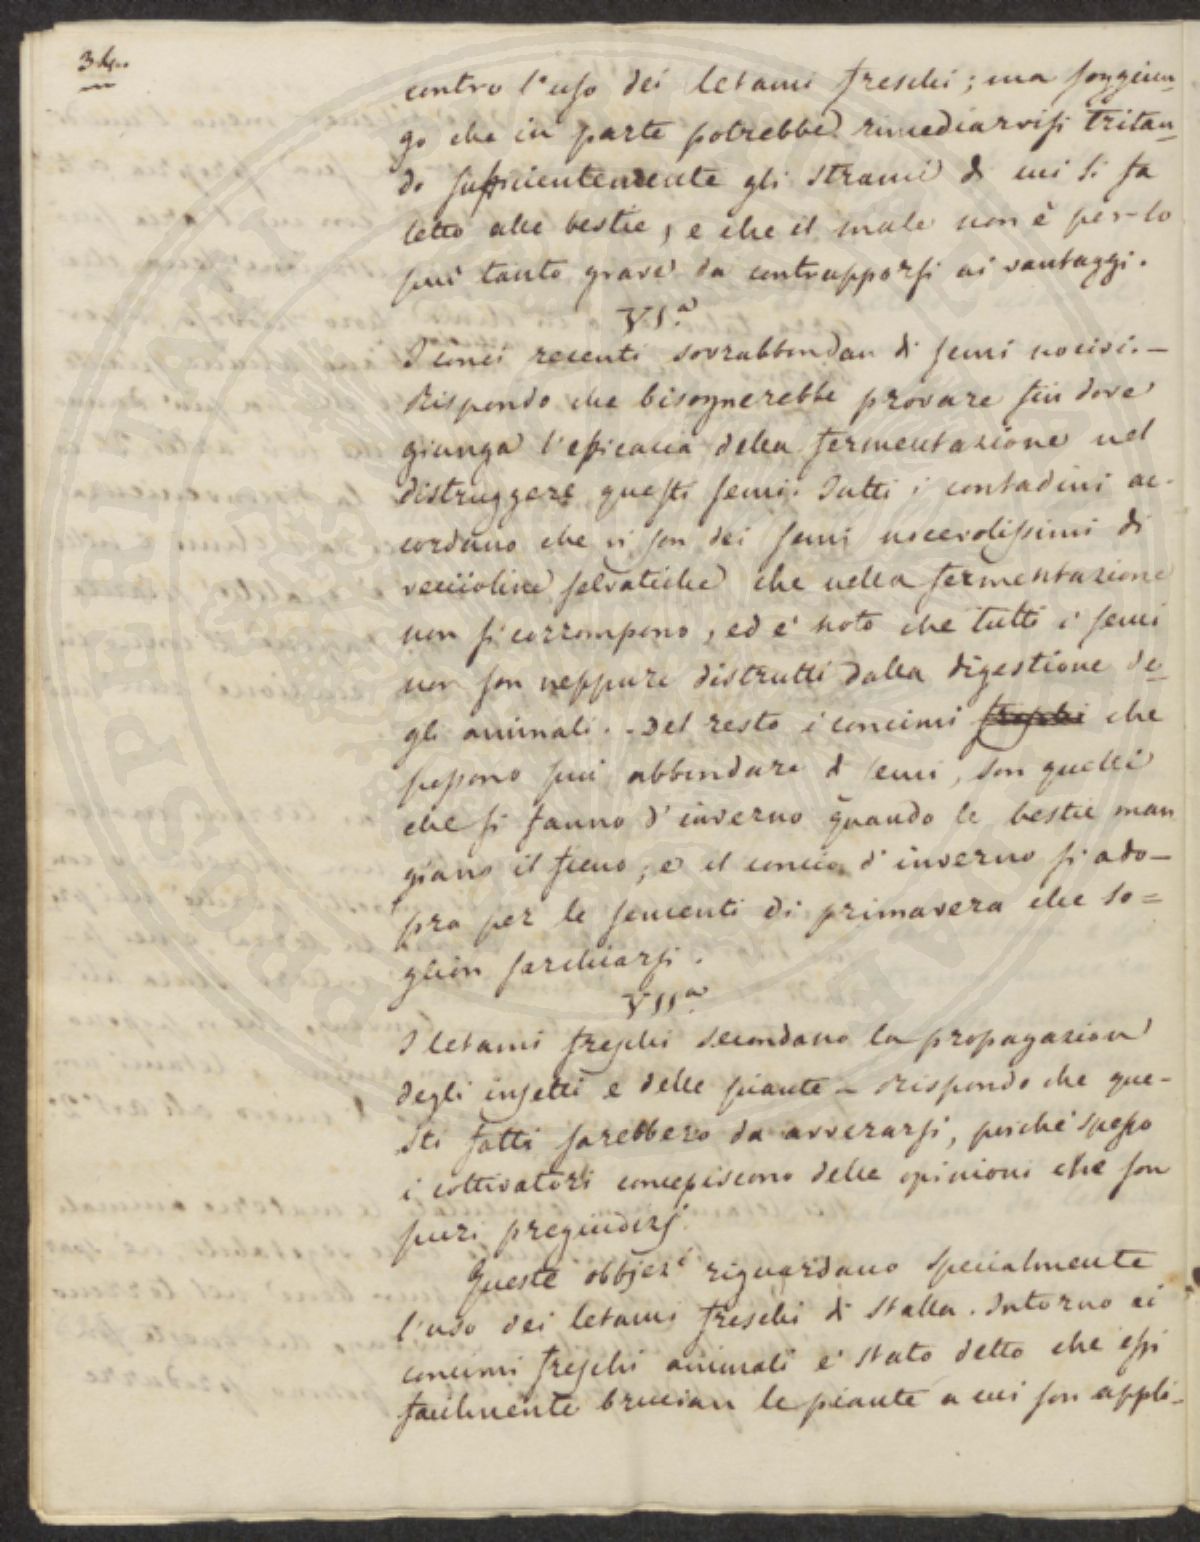 contro l'uso dei letami freschi; ma soggiun-
go che in parte potrebbe rimediarvisi tritan-
do sufficientemente gli strami di cui si fa
letto alle bestie, e che il male non è per-lo
più tanto grave da contrapporsi ai vantaggi.
VI.a
I conci recenti sovrabbondan di semi nocivi. —
Rispondo che bisognerebbe provare fin dove
giunga l'efficacia della fermentazione nel
distruggere questi semi. Tutti i contadini ac-
cordano che vi son dei semi nocevolissimi di
veccioline selvatiche che nella fermentazione
non si corrompono, ed è noto che tutti i semi
non son neppure distrutti dalla digestione de-
gli animali. - Del resto i concimi freschi che
possono più abbondare di semi, son quelli
che si fanno d'inverno quando le bestie man
giano il fieno, e il concio d'inverno si ado-
pra per le sementi di primavera che so=
glion sarchiarsi.
VII.a
I letami freschi secondano la propagazion
degli insetti e delle piante - Rispondo che que-
sti fatti sarebbero da avverarsi, poichè spesso
i coltivatori concepiscono delle opinioni che son
puri pregiudizj
Queste obbjezi riguardano specialmente
l'uso dei letami freschi di stalla. Intorno ai
concimi freschi animali è stato detto che essi
facilmente brucian le piante a cui son appli-